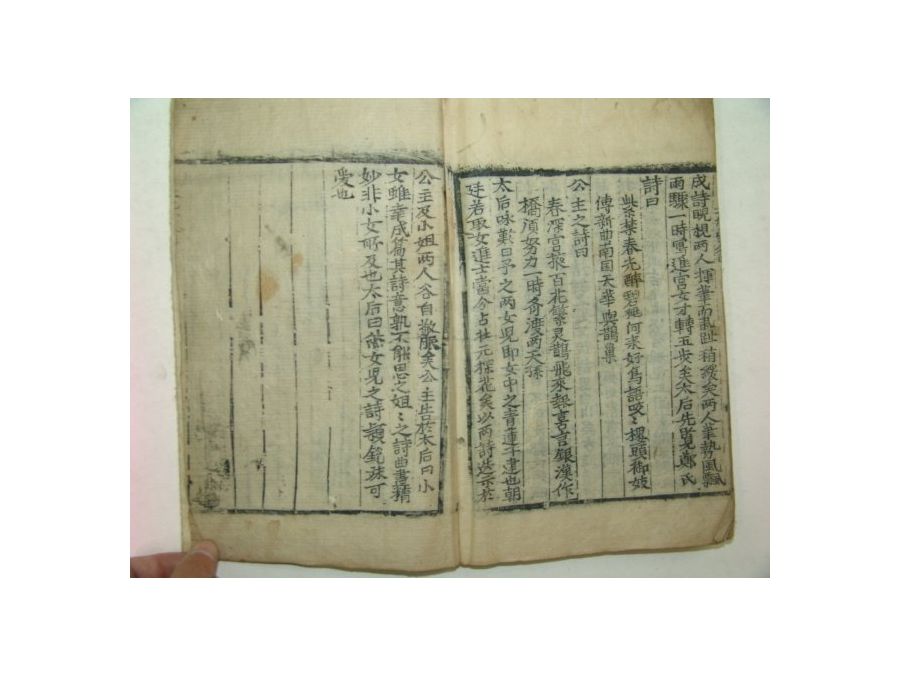 成詩睨視兩人揮筆而亂趾稍緩矣兩人筆勢風飄
雨驟一時寫進宮女才轉五步至太后先覽鄭氏
詩曰
紫禁春光醉碧桃何來好鳥語咬〻樓頭御妓
傳新曲南国天華與鵲巢
公主之詩曰
春深宮掖百花繁灵鵲飛來報喜言銀漢作
橋須努力一時齊渡兩天孫
太后咏歎曰予之兩女兒即女中之靑蓮子建也朝
廷若取女進士當今占壯元探花矣以兩詩迭示於
公主及小姐兩人各自敬服矣公主告於太后曰小
女雖幸成篇其詩意孰不能思之姐〻之詩曲書精
妙非小女所及也太后曰然女兒之詩穎銳殊可
愛也